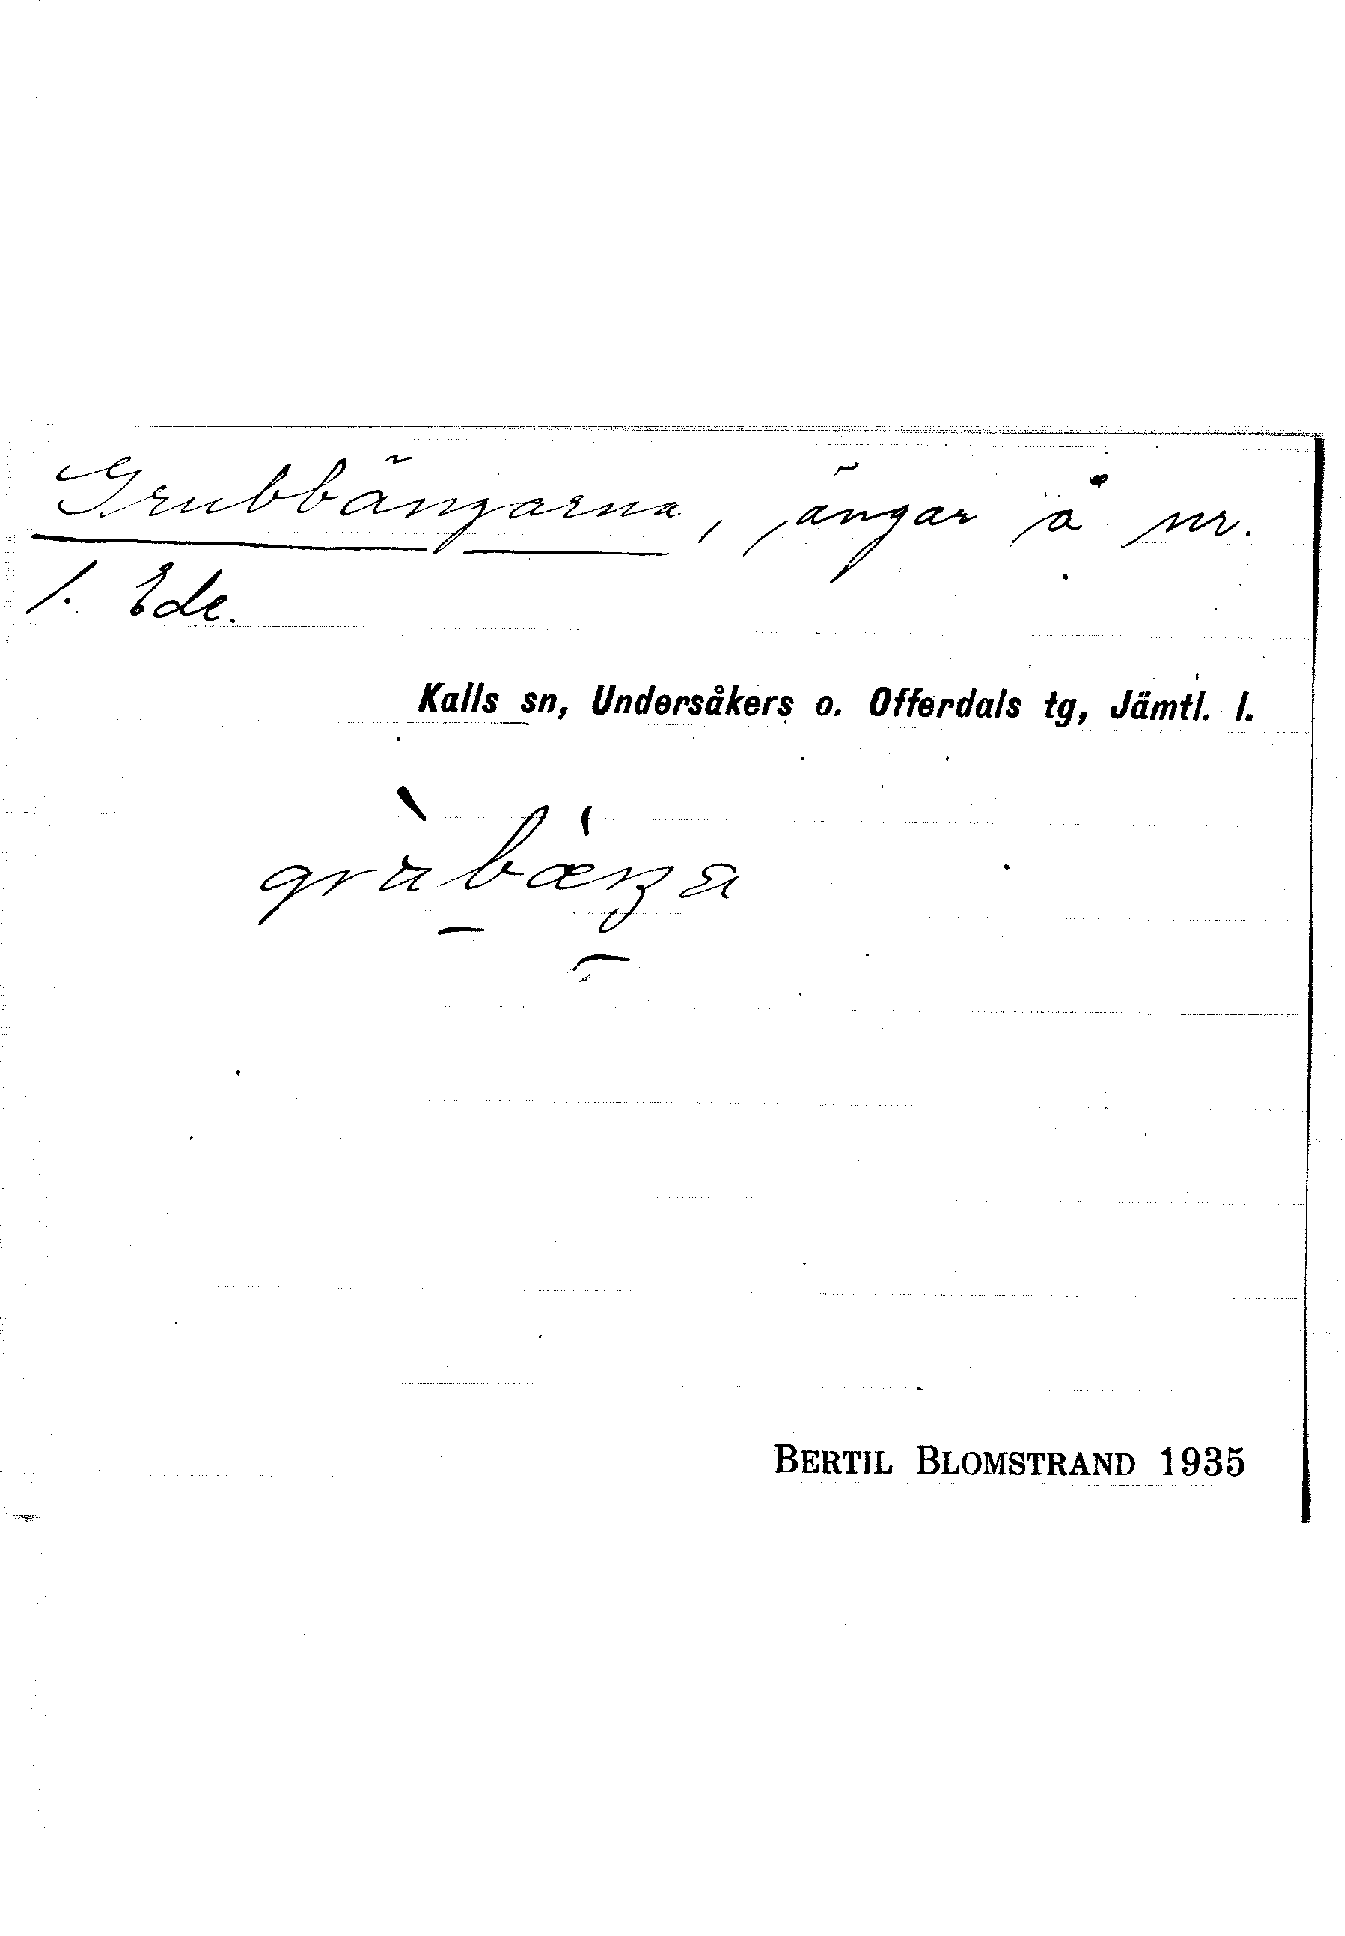 Grubbängarna, ängar å nr.
1. Ede.
Kalls sn, Undersåkers o. Offerdals tg, Jämtl. l.
BERTIL BLOMSTRAND 1935